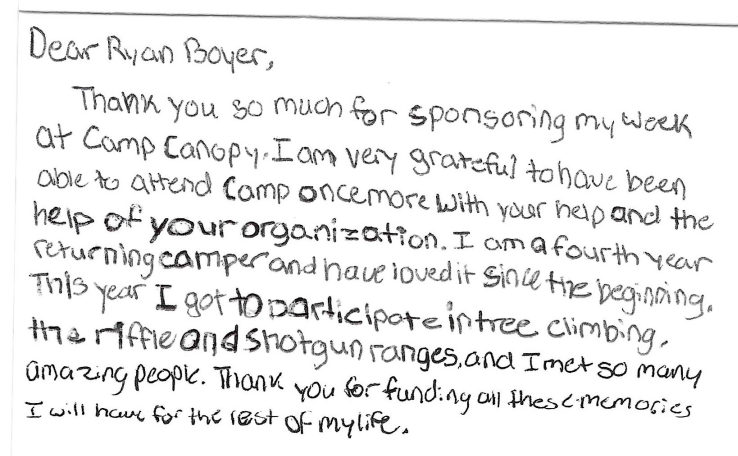 Dear Ryan Boyer,
Thank you so much for sponsoring my week
at Camp Canopy. I am very grateful to have been
able to attend Camp once more with your help and the
help of your organization. I am a fourth year
returning camper and have loved it since the beginning.
This year I got to participate in tree climbing,
the riffle and shotgun ranges, and I met so many
amazing people. Thank you for funding all these memories
I will have for the rest of my life.